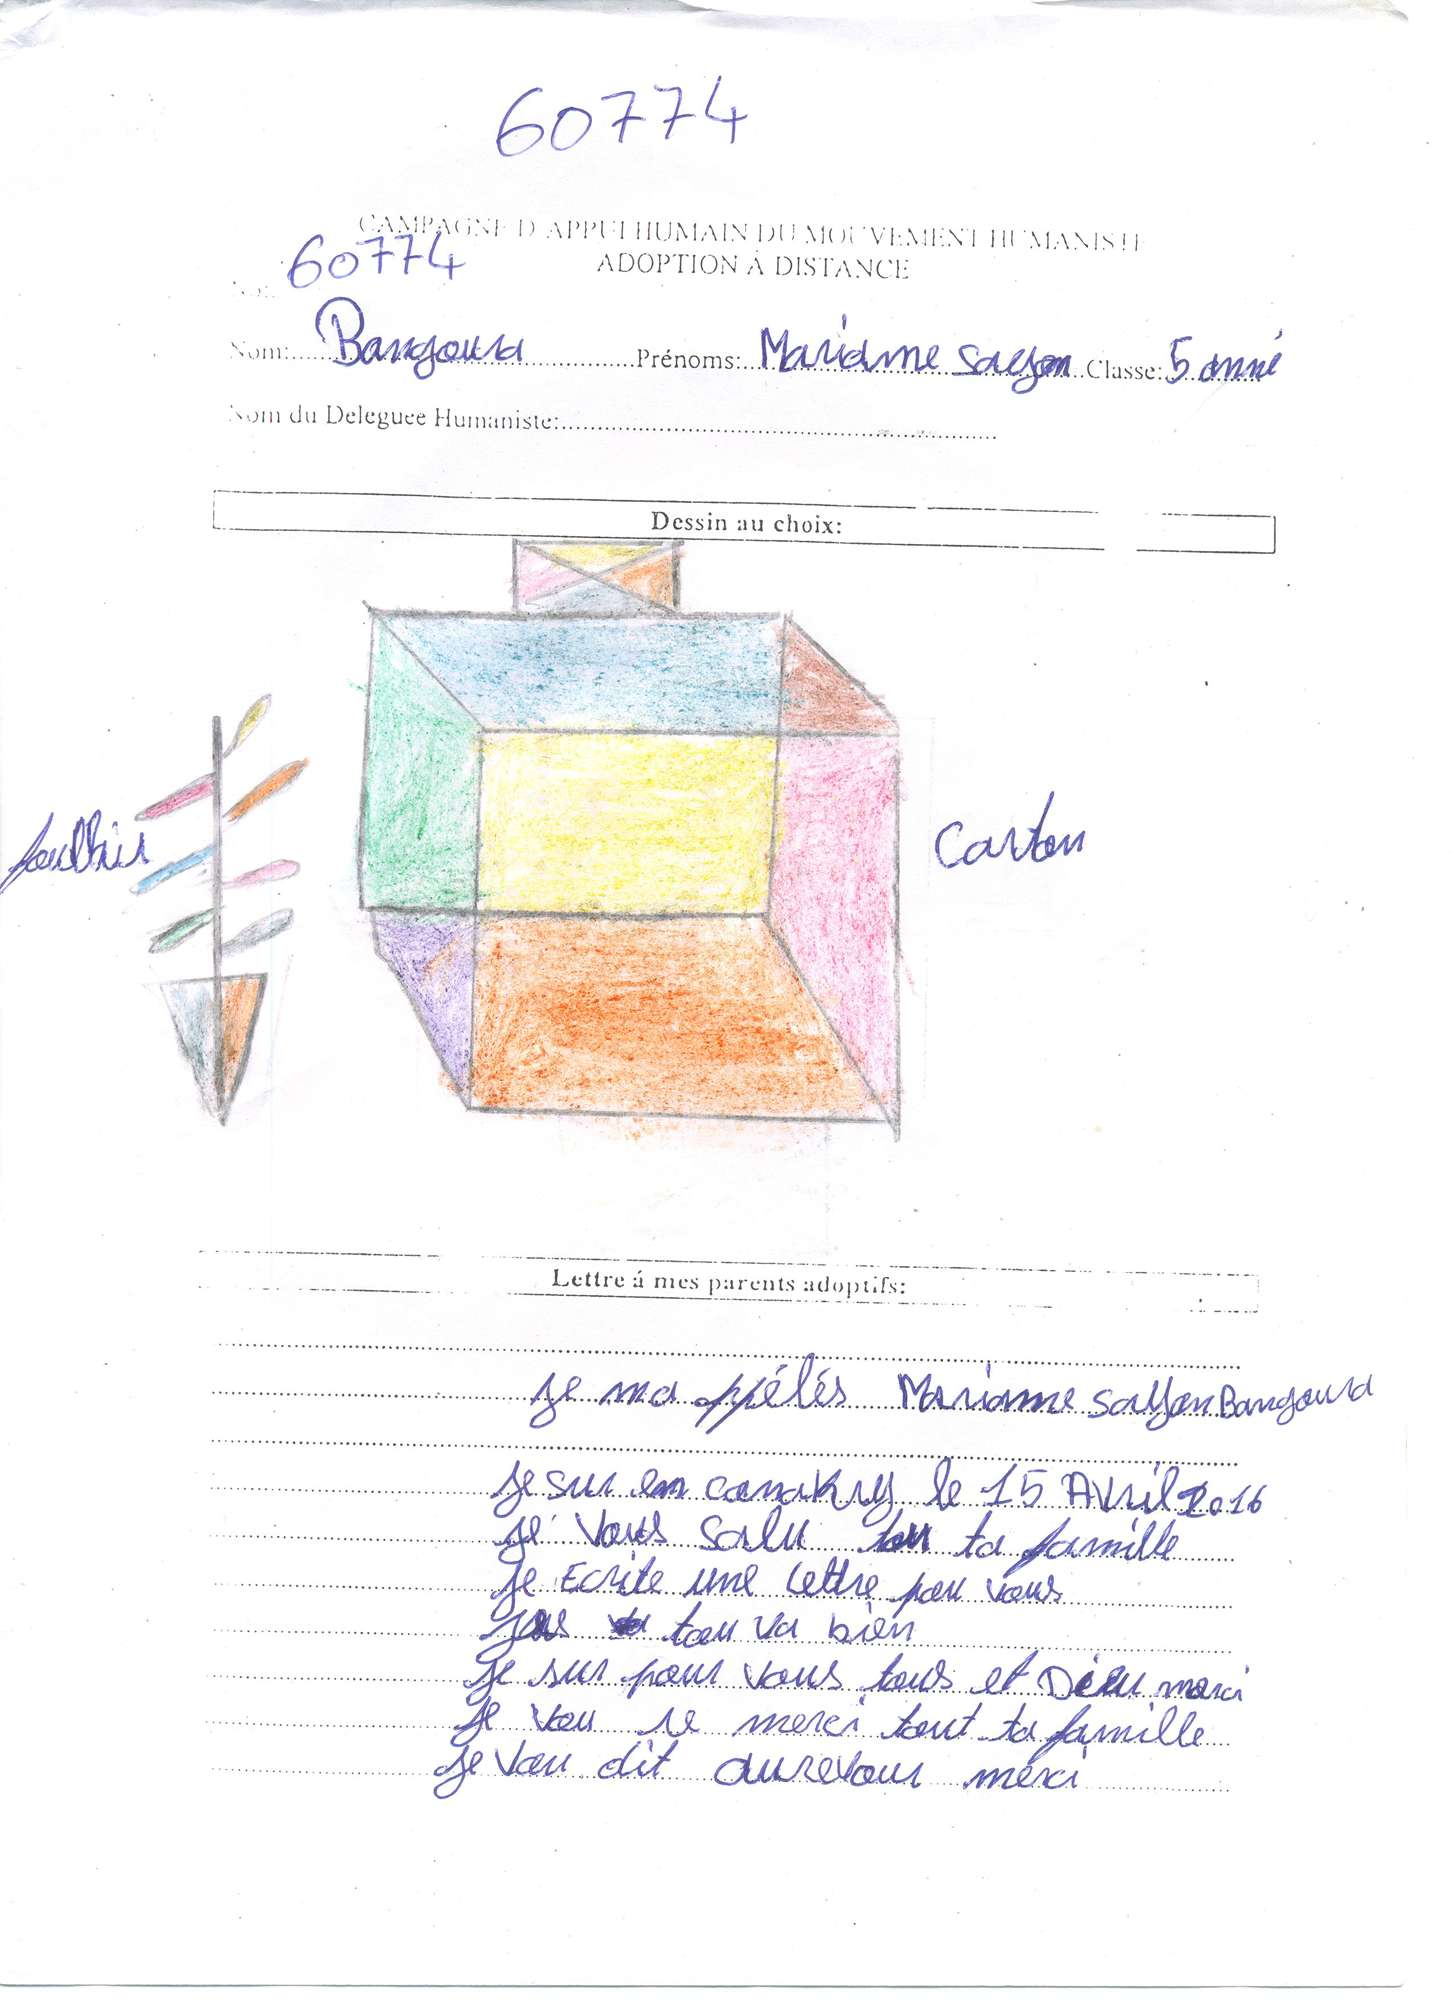 60774
CAMPAGNE D'APPUI HUMAIN DU MOUVEMENT HUMANISTE
ADOPTION À DISTANCE
60774
Nom: Bangoura Prénoms: Mariame Classe: 5 anné
Nom du Deleguee Humaniste:
Dessin au choix:
Carton
Lettre á mes parents adoptifs:
je ma appélés Mariame Bangoura
je sur en conakry le 15 Avril 2016
je vous salu ta famille
je Ecrite une lettre pou vous
tou va bien
je sur pour vous tous et Dieu merci
je vou re merci tout ta famille
je vou dit aurevour merci